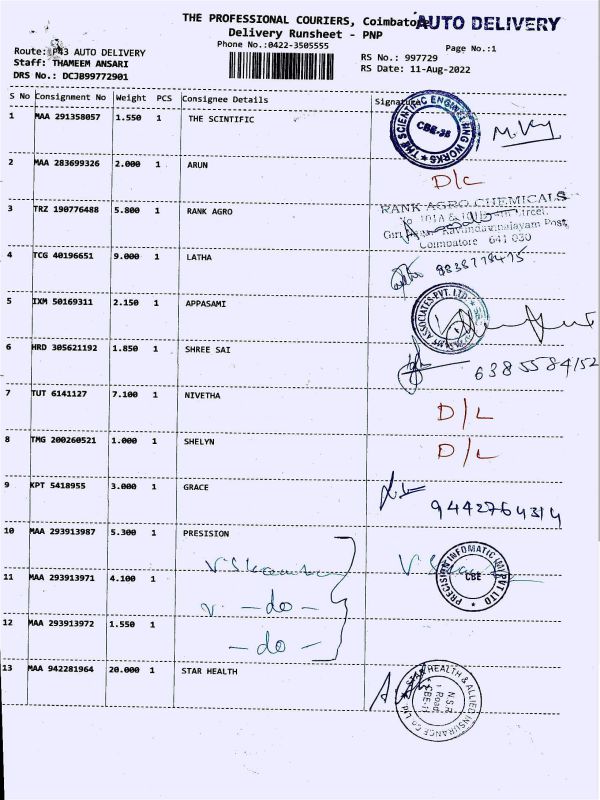 THE PROFESSIONAL COURIERS, Coimbatore
AUTO DELIVERY
Delivery Runsheet - PNP
Phone No.:0422-3505555
Page No.:1
Route: P43 AUTO DELIVERY
Staff: THAMEEM ANSARI
DRS No.: DCJB99772901
RS No.: 997729
RS Date: 11-Aug-2022
S No Consignment No Weight PCS Consignee Details Signature
1 MAA 291358057 1.550 1 THE SCINTIFIC
THE SCIENTIFIC ENGINEERING WORKS
CBE-36
2 MAA 283699326 2.000 1 ARUN
D/C
3 TRZ 190776488 5.800 1 RANK AGRO
RANK AGRO CHEMICALS
Coimbatore 641 030
4 TCG 40196651 9.000 1 LATHA
5 IXM 50169311 2.150 1 APPASAMI
ASSOCIATES PVT. LTD.
6 HRD 305621192 1.850 1 SHREE SAI
6385584152
7 TUT 6141127 7.100 1 NIVETHA
D/L
8 TMG 200260521 1.000 1 SHELYN
D/L
9 KPT 5418955 3.000 1 GRACE
9442764314
10 MAA 293913987 5.300 1 PRESISION
PRECISION INFOMATIC (M) PVT LTD
CBE
11 MAA 293913971 4.100 1
- do -
12 MAA 293913972 1.550 1
- do -
13 MAA 942281964 20.000 1 STAR HEALTH
STAR HEALTH & ALLIED INSURANCE Co Ltd
N.S.R.
Road,
CBE-11